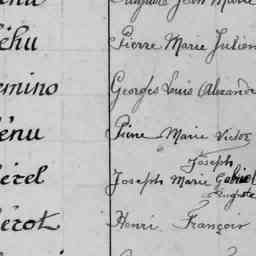 Auguste Jean Marie
éhu Pierre Marie Julien
emino Georges Louis Alexandre
énu Pierre Marie Victor
Joseph
érel Joseph Marie Gabriel
Auguste
érot Henri François